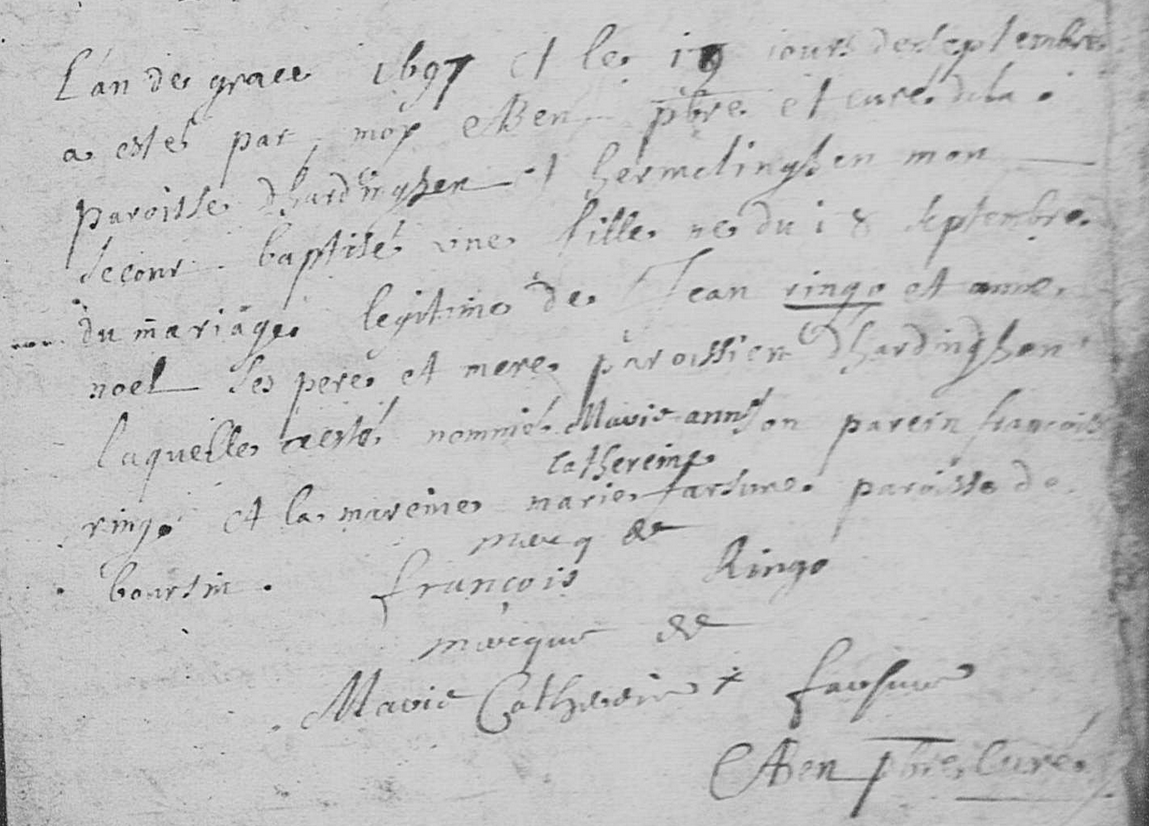 L'an de grace 1697 et le 19 iour de septembre
a esté par moy pbre et curé de la
paroisse d'hardinghen et hermelinghen mon
secour baptisé une fille née du 18 septembre
du mariage legitime de Jean ringo et anne
noel ses pere et mere paroissien d'hardinghen
laquelle a esté nommé Marie anne son parein françois
catherine
ringo et la mareine marie farsure paroisse de
marcq de
boursin. françois Ringo
marque de
Marie Catherine x
pbre Curé